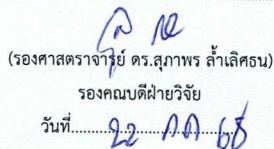 (รองศาสตราจารย์ ดร.สุภาพร ล้ำเลิศธน)
รองคณบดีฝ่ายวิจัย
วันที่ 22 กค 68